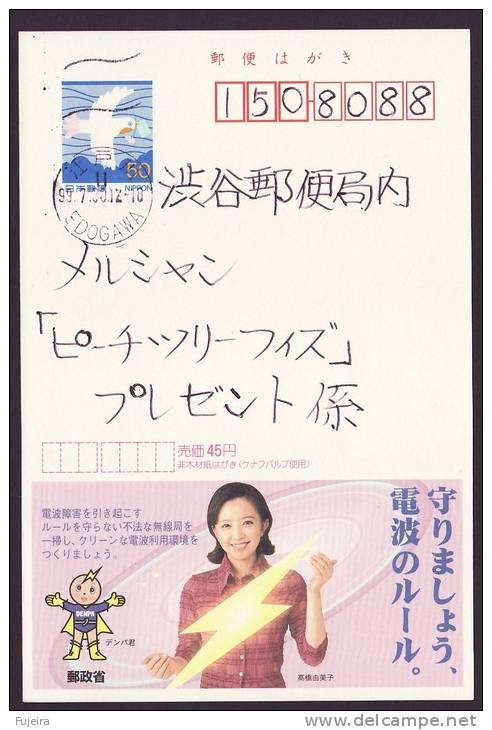 郵便はがき
150-8088
50
日本郵便 NIPPON
江戸
11
99.7.30.12-18
EDOGAWA
渋谷郵便局内
メルシャン
「ピーチツリーフィズ」
プレゼント係
売価45円
非木材紙はがき(ケナフパルプ使用)
電波障害を引き起こす
ルールを守らない不法な無線局を
一掃し、クリーンな電波利用環境を
つくりましょう。
守りましょう、
電波のルール。
DENPA
デンパ君
郵政省
高橋由美子
Fujeira
www.delcampe.net